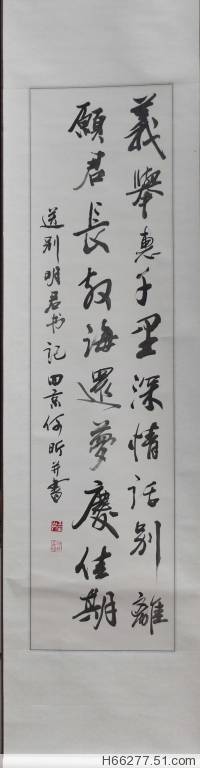 義舉惠千里深情話别離
願君長教誨還夢慶佳期
送别明君书记 田京何昕并書
H66277.51.com